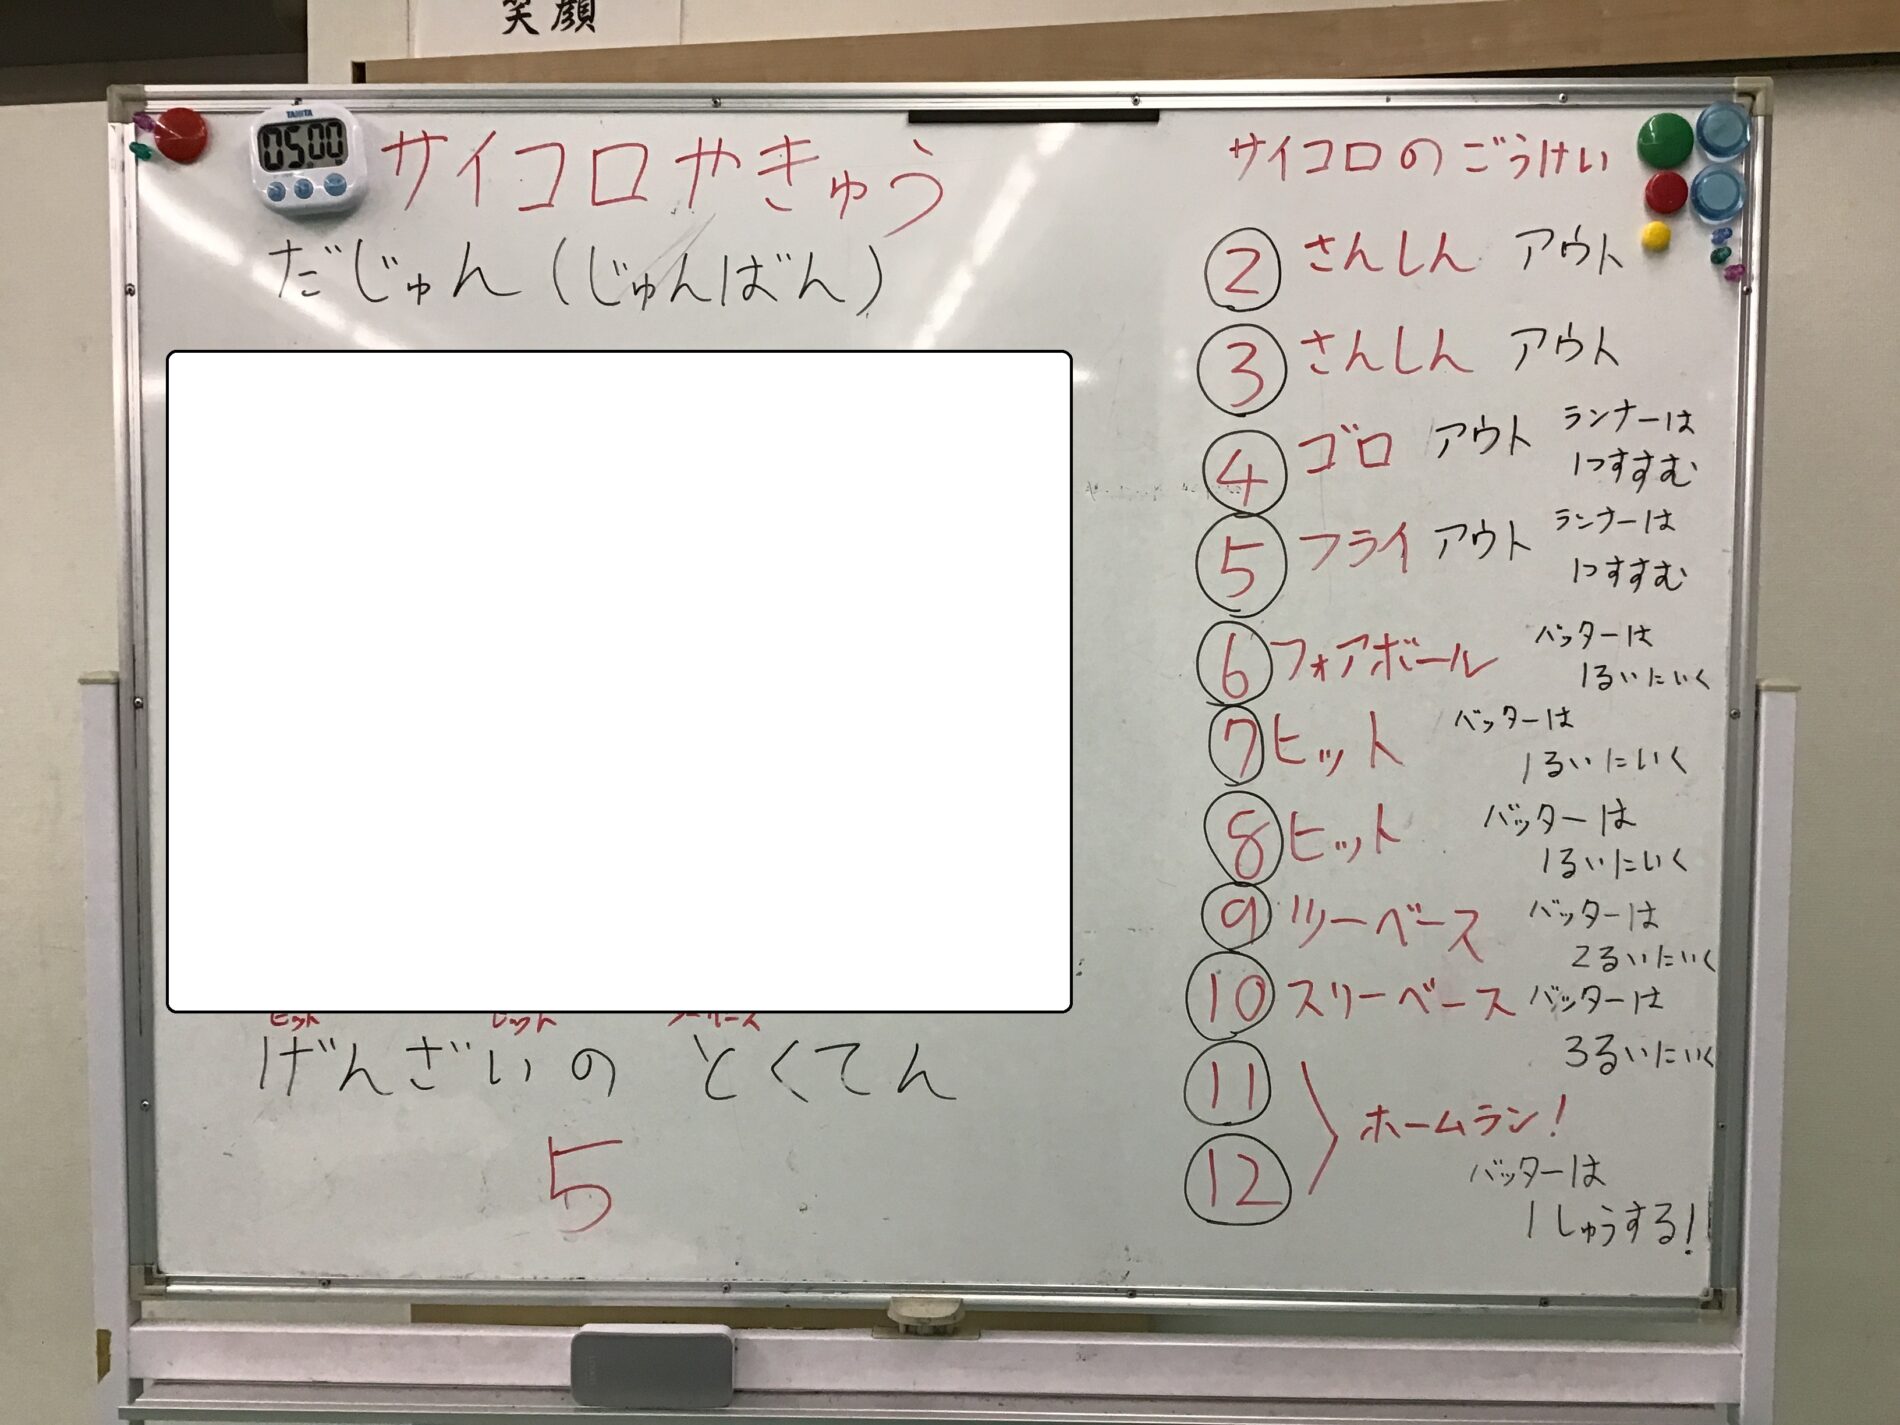 笑顔
TANITA
05.00
サイコロやきゅう
だじゅん(じゅんばん)
ヒット ヒット ツーベース
げんざいの とくてん
5
サイコロのごうけい
② さんしん アウト
③ さんしん アウト
④ ゴロ アウト ランナーは
1つすすむ
⑤ フライ アウト ランナーは
1つすすむ
⑥ フォアボール バッターは
1るいにいく
⑦ ヒット バッターは
1るいにいく
⑧ ヒット バッターは
1るいにいく
⑨ ツーベース バッターは
2るいにいく
⑩ スリーベース バッターは
3るいにいく
⑪
⑫
ホームラン!
バッターは
1しゅうする!